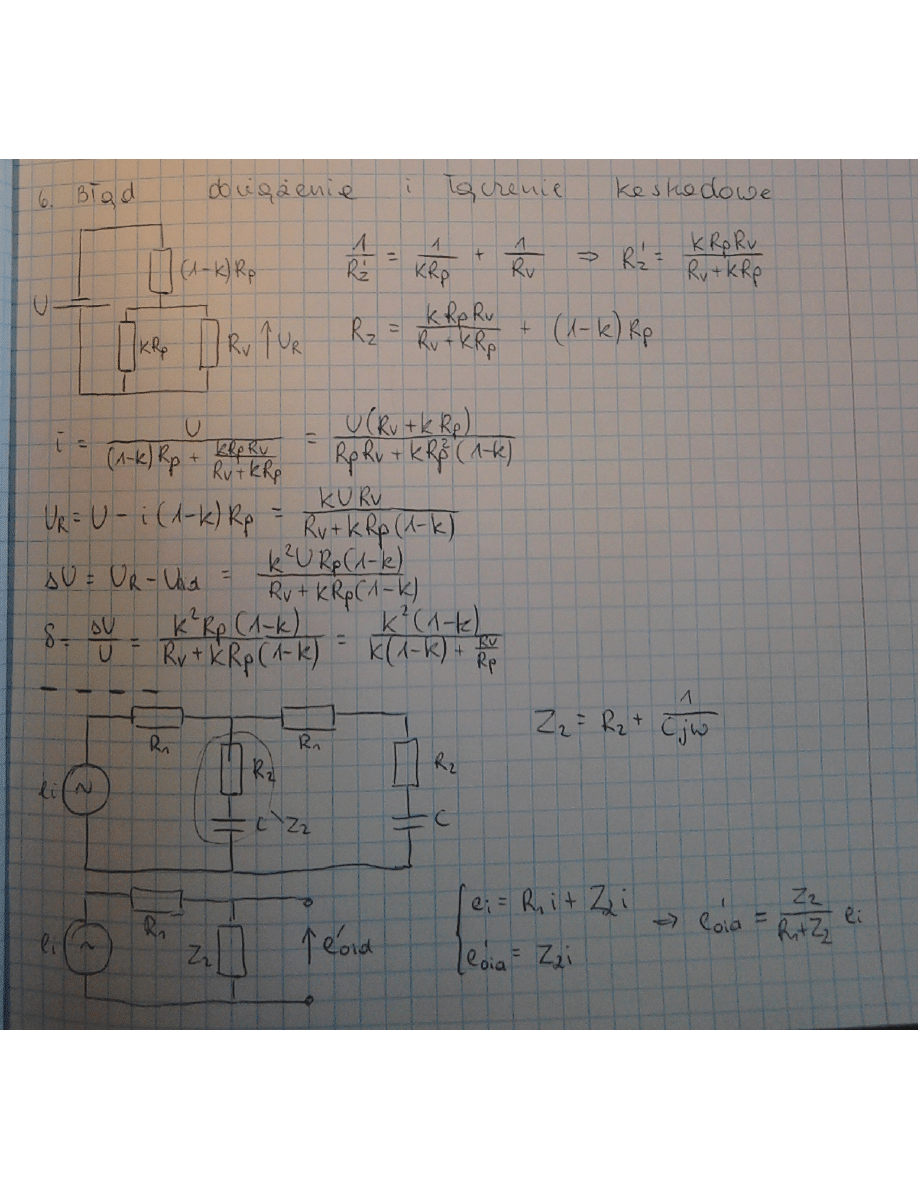 6. Błąd dociążenia i łączenie kaskadowe
U (1-k)Rp kRp Rv ↑UR
1/Rz' = 1/kRp + 1/Rv ⇒ Rz' = kRpRv/(Rv+kRp)
Rz = kRpRv/(Rv+kRp) + (1-k)Rp
i = U/((1-k)Rp + kRpRv/(Rv+kRp)) = U(Rv+kRp)/(RpRv+kRp²(1-k))
UR = U - i(1-k)Rp = kURv/(Rv+kRp(1-k))
ΔU = UR - Uid = k²URp(1-k)/(Rv+kRp(1-k))
δ = ΔU/U = k²Rp(1-k)/(Rv+kRp(1-k)) = k²(1-k)/(k(1-k)+Rv/Rp)
ei ~ R1 R2 C Z2 R1 R2 C
Z2 = R2 + 1/Cjω
ei ~ R1 Z2 ↑e'oid
{ ei = R1i + Z2i
e'oid = Z2i ⇒ e'oid = Z2/(R1+Z2) ei